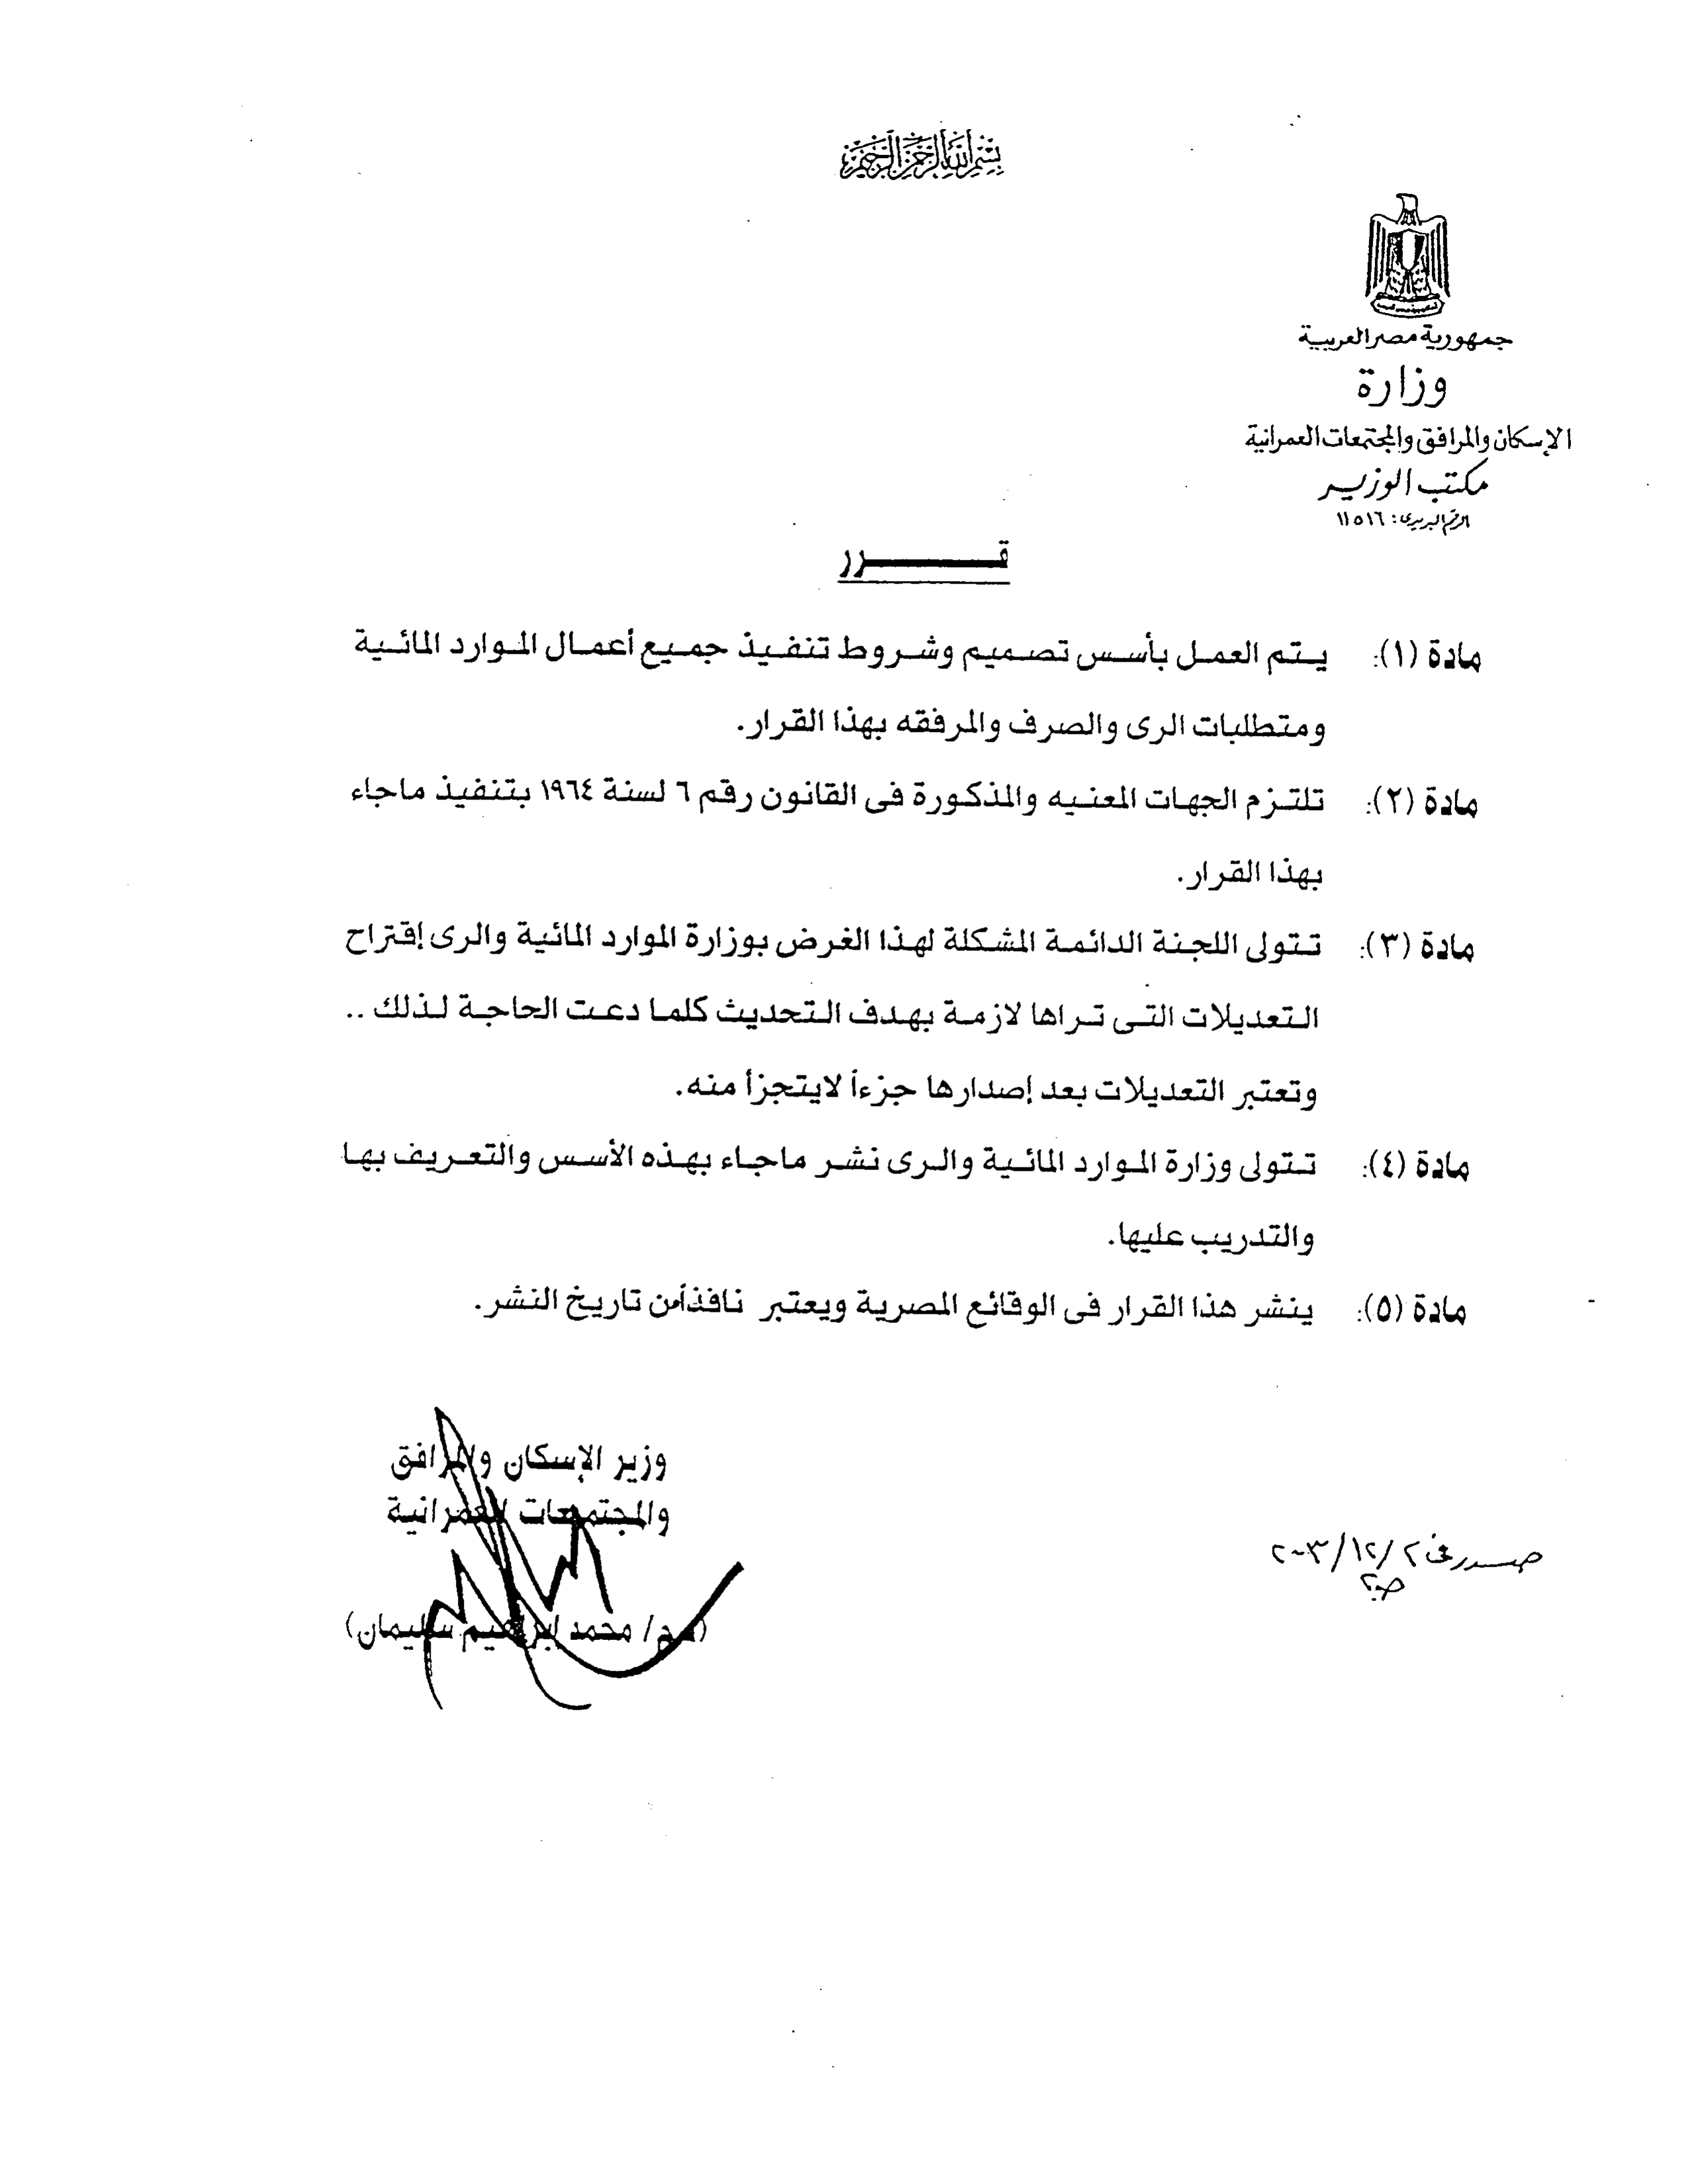 بسم الله الرحمن الرحيم
جمهورية مصر العربية
وزارة
الإسكان والمرافق والمجتمعات العمرانية
مكتب الوزير
الرقم البريدى: ١١٥١٦
قـــــــرر
مادة (١): يتم العمل بأسس تصميم وشروط تنفيذ جميع أعمال الموارد المائية
ومتطلبات الرى والصرف والمرفقه بهذا القرار.
مادة (٢): تلتزم الجهات المعنيه والمذكورة فى القانون رقم ٦ لسنة ١٩٦٤ بتنفيذ ماجاء
بهذا القرار.
مادة (٣): تتولى اللجنة الدائمة المشكلة لهذا الغرض بوزارة الموارد المائية والرى إقتراح
التعديلات التى تراها لازمة بهدف التحديث كلما دعت الحاجة لذلك ..
وتعتبر التعديلات بعد إصدارها جزءاً لايتجزأ منه.
مادة (٤): تتولى وزارة الموارد المائية والرى نشر ماجاء بهذه الأسس والتعريف بها
والتدريب عليها.
مادة (٥): ينشر هذا القرار فى الوقائع المصرية ويعتبر نافذاً من تاريخ النشر.
وزير الإسكان والمرافق
والمجتمعات العمرانية
صدر فى ٢ /١٢/ ٢٠٠٣
محمد ابراهيم سليمان)